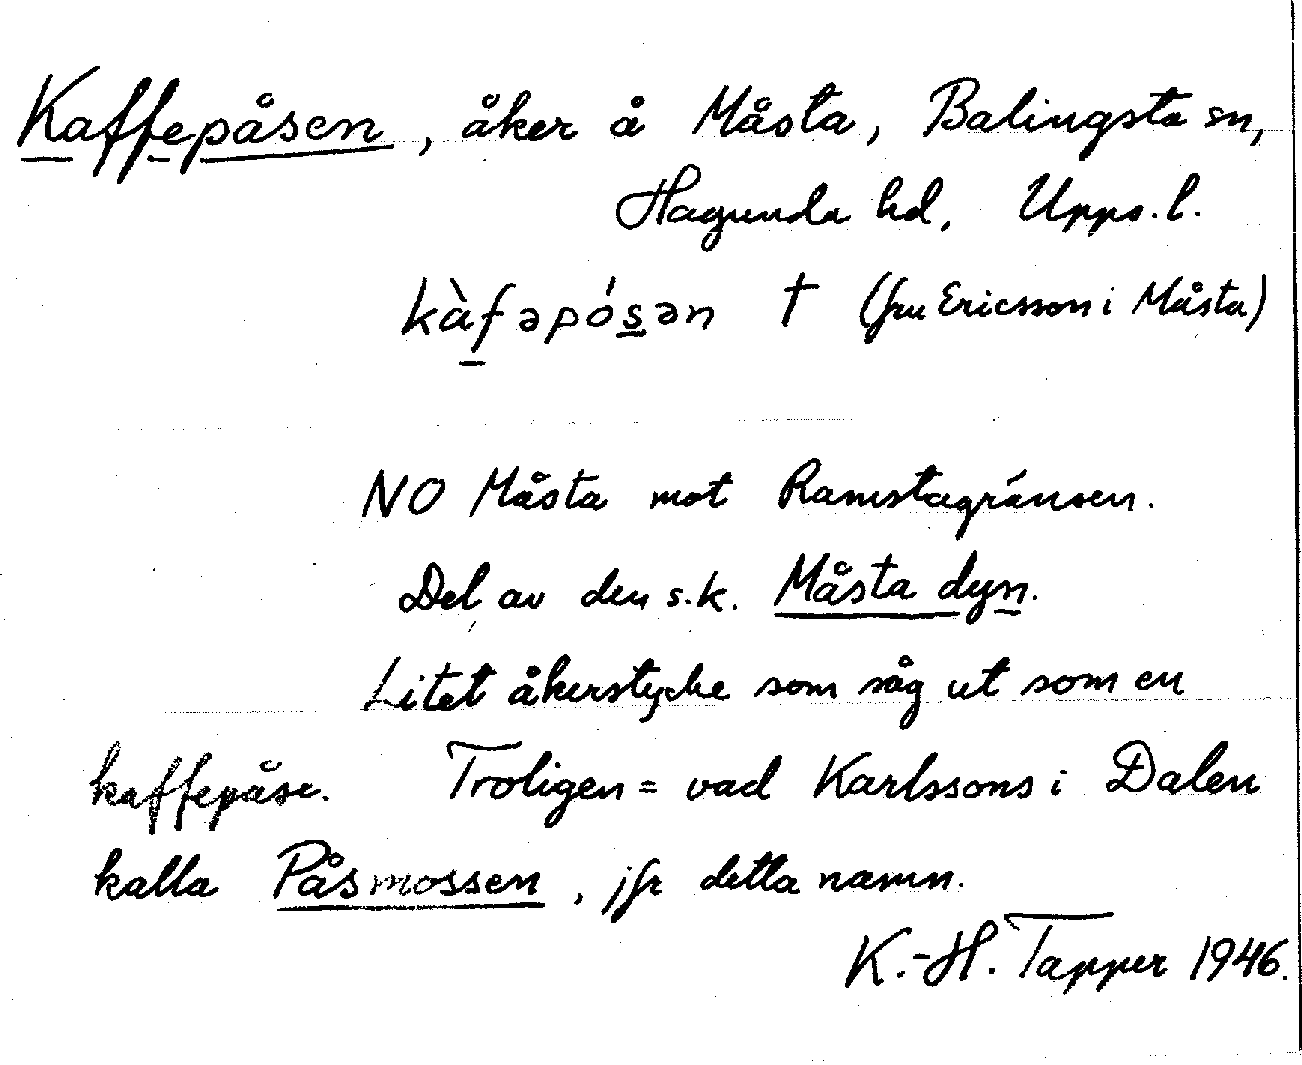 Kaffepåsen, åker å Måsta, Balingsta sn,
Hagunda hd, Upps. l.
kàfəpósən † (fru Ericsson i Måsta)
NO Måsta mot Ramstagränsen.
Del av den s.k. Måsta dyn.
Litet åkerstycke som såg ut som en
kaffepåse. Troligen = vad Karlssons i Dalen
kalla Påsmossen, jfr detta namn.
K.-H. Tapper 1946.